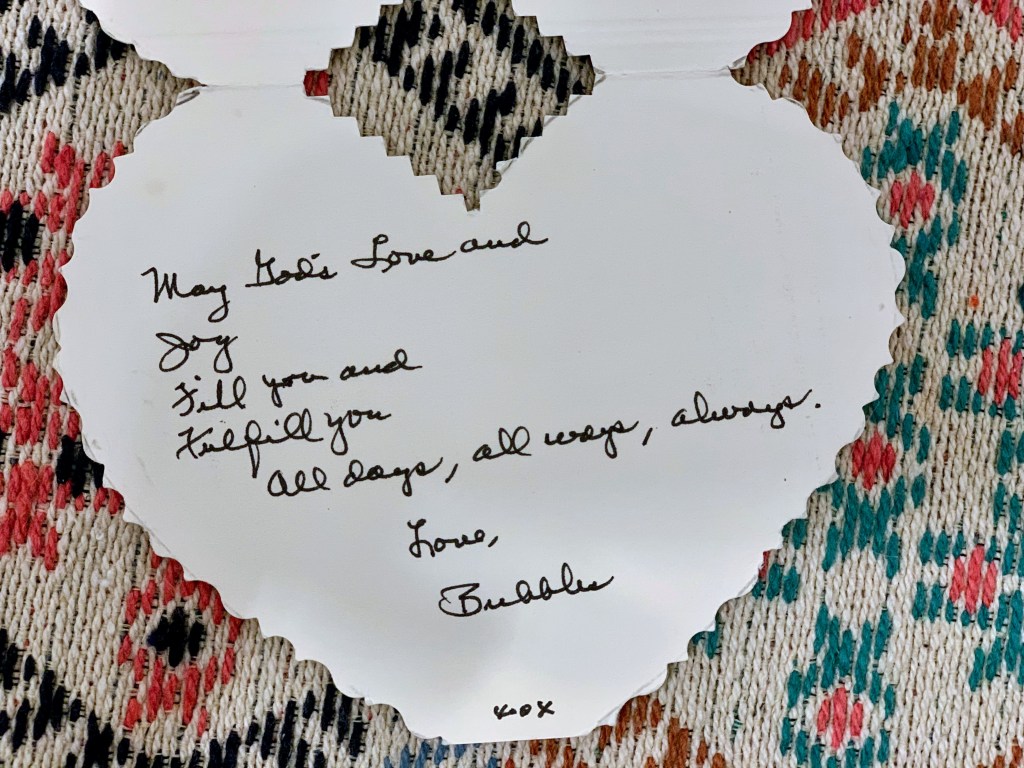 May God's Love and
Joy
Fill you and
Fulfill you
All days, all ways, always.
Love,
Bubbles
xox